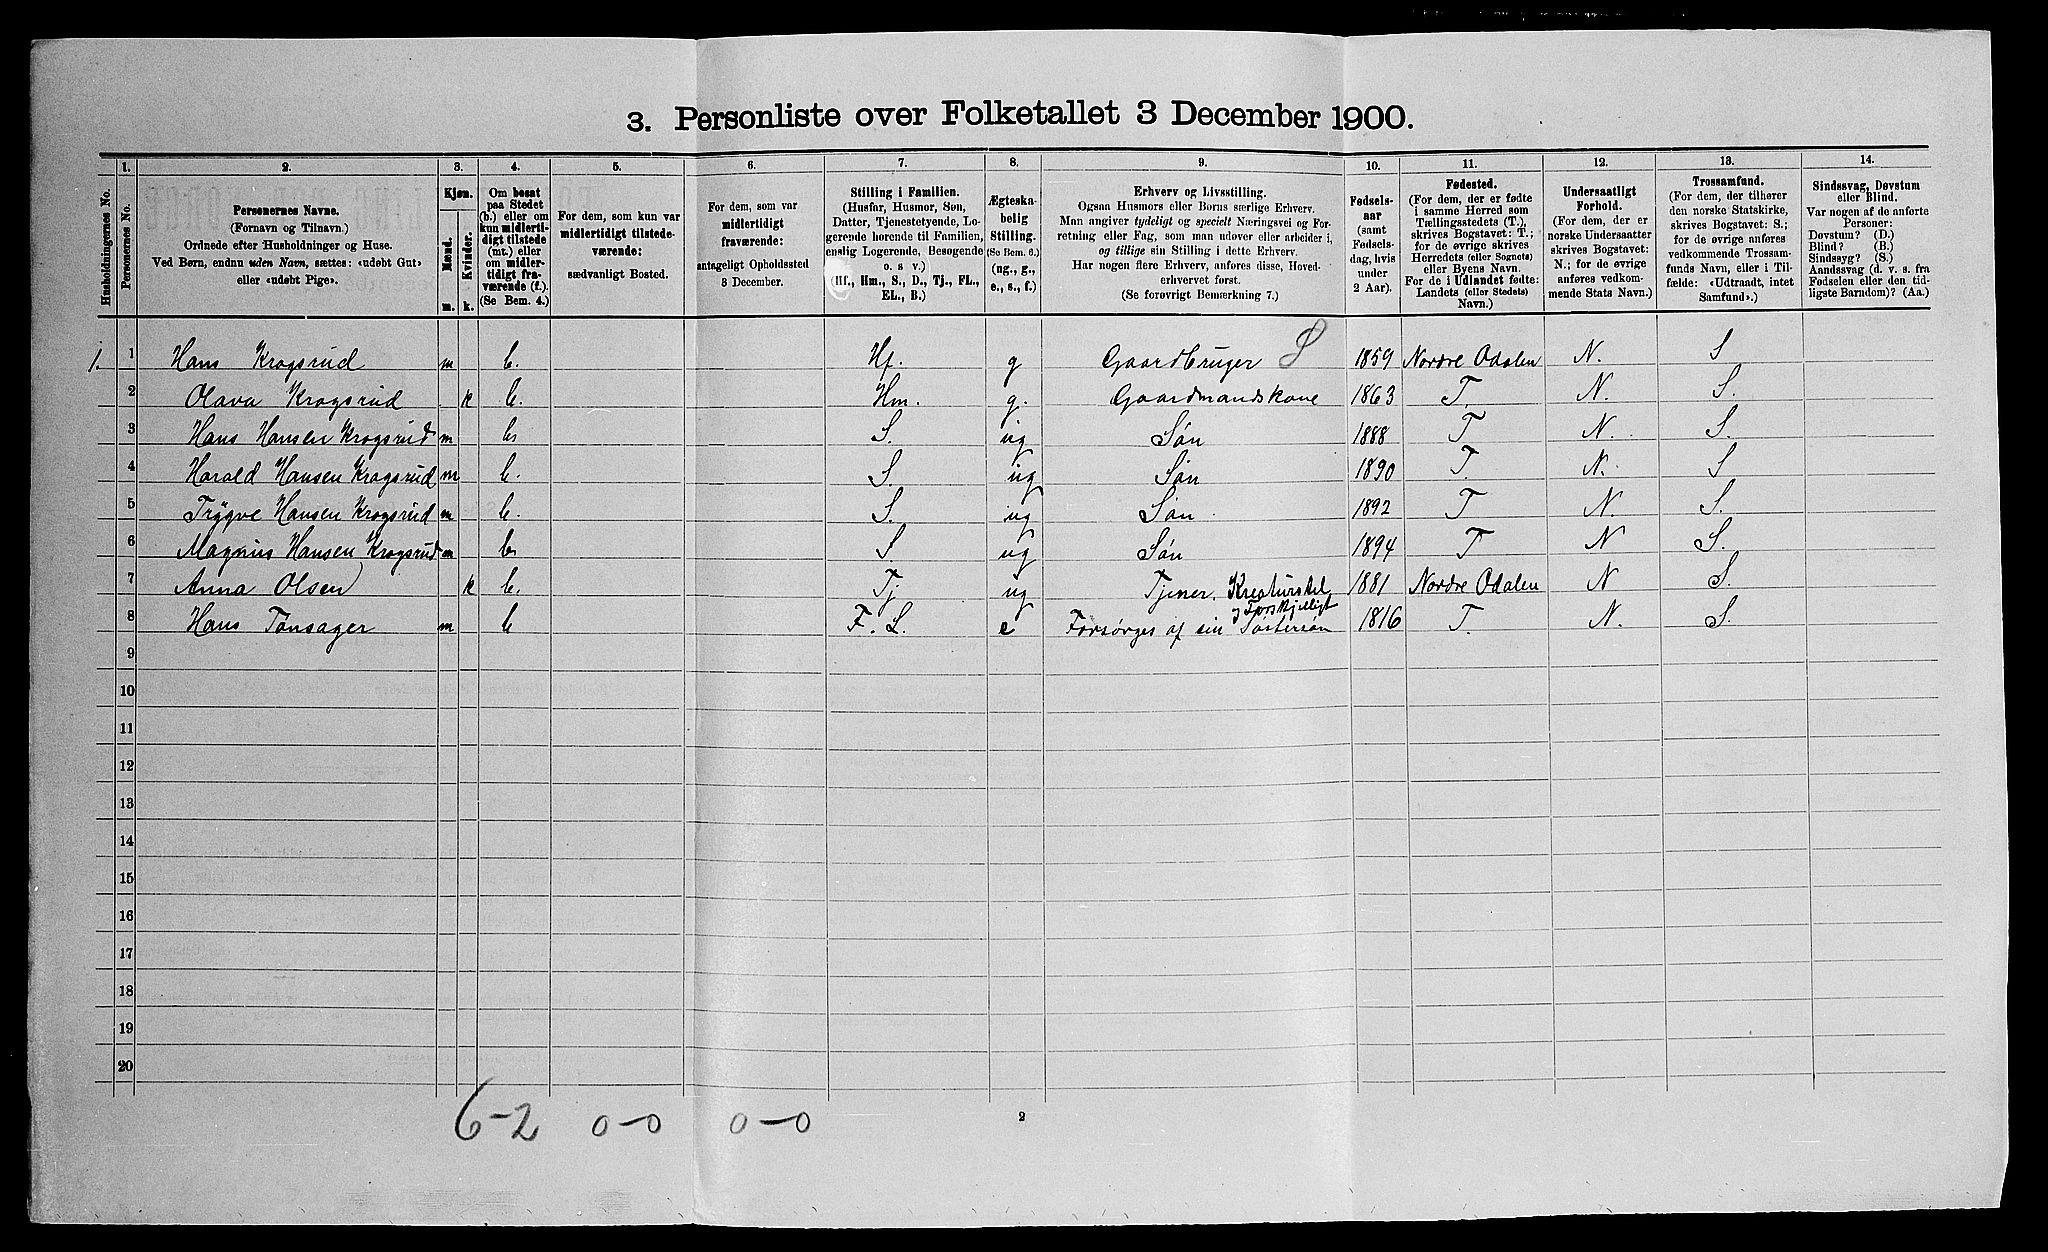 3. Personliste over Folketallet 3 December 1900.
1. 2. 3. 4. 5. 6. 7. 8. 9. 10. 11. 12. 13. 14.
Husholdningernes No.
Personernes No.
Personernes Navne.
(Fornavn og Tilnavn.)
Ordnede efter Husholdninger og Huse.
Ved Børn, endnu uden Navn, sættes: «udøbt Gut»
eller «udøbt Pige».
Kjøn.
Mænd.
Kvinder.
m. k.
Om bosat
paa Stedet
(b.) eller om
kun midler-
tidigt tilstede
(mt.) eller
om midler-
tidigt fra-
værende (f.).
(Se Bem. 4.)
For dem, som kun var
midlertidigt tilstede-
værende:
sædvanligt Bosted.
For dem, som var
midlertidigt
fraværende:
antageligt Opholdssted
3 December.
Stilling i Familien.
(Husfar, Husmor, Søn,
Datter, Tjenestetyende, Lo-
gerende hørende til Familien,
enslig Logerende, Besøgende
o. s v.)
(Hf., Hm., S., D., Tj., FL.,
EL., B.)
Ægteska-
belig
Stilling.
(Se Bem. 6.)
(ug., g.,
e., s., f.)
Erhverv og Livsstilling.
Ogsaa Husmors eller Børns særlige Erhverv.
Man angiver tydeligt og specielt Næringsvei og For-
retning eller Fag, som man udøver eller arbeider i,
og tillige sin Stilling i dette Erhverv.
Har nogen flere Erhverv, anføres disse, Hoved-
erhvervet først.
(Se forøvrigt Bemærkning 7.)
Fødsels-
aar
(samt
Fødsels-
dag, hvis
under
2 Aar).
Fødested.
(For dem, der er fødte
i samme Herred som
Tællingsstedets (T.),
skrives Bogstavet: T.;
for de øvrige skrives
Herredets (eller Sognets)
eller Byens Navn.
For de i Udlandet fødte:
Landets (eller Stedets)
Navn.)
Undersaatligt
Forhold.
(For dem, der er
norske Undersaatter
skrives Bogstavet:
N.; for de øvrige
anføres vedkom-
mende Stats Navn.)
Trossamfund.
(For dem, der tilhører
den norske Statskirke,
skrives Bogstavet: S.;
for de øvrige anføres
vedkommende Trossam-
funds Navn, eller i Til-
fælde: «Udtraadt, intet
Samfund».)
Sindssvag, Døvstum
eller Blind.
Var nogen af de anførte
Personer:
Døvstum? (D.)
Blind? (B.)
Sindssyg? (S.)
Aandssvag (d. v. s. fra
Fødselen eller den tid-
ligste Barndom)? (Aa.)
1. 1 Hans Krogsrud m b. Hf. g Gaardbruger S 1859 Nordre Odalen N. S
2 Olava Krogsrud k b. Hm. g. Gaardmandskone 1863 T. N. S.
3 Hans Hansen Krogsrud m b. S. ug Søn 1888 T N. S.
4 Harald Hansen Krogsrud m b. S. ug Søn 1890 T. N. S
5 Trygve Hansen Krogsrud m b. S. ug Søn 1892 T N. S.
6 Magnus Hansen Krogsrud m b. S ug Søn 1894 T N S.
7 Anna Olsen k b. Tj ug Tjener, Kreaturstel 1881 Nordre Odalen N S.
og Forskjelligt
8 Hans Tønsager m b F. L. e Forsørges af sin Søstersøn 1816 T. N. S.
9
10
11
12
13
14
15
16
17
18
19
20
6-2 0-0 0-0
2